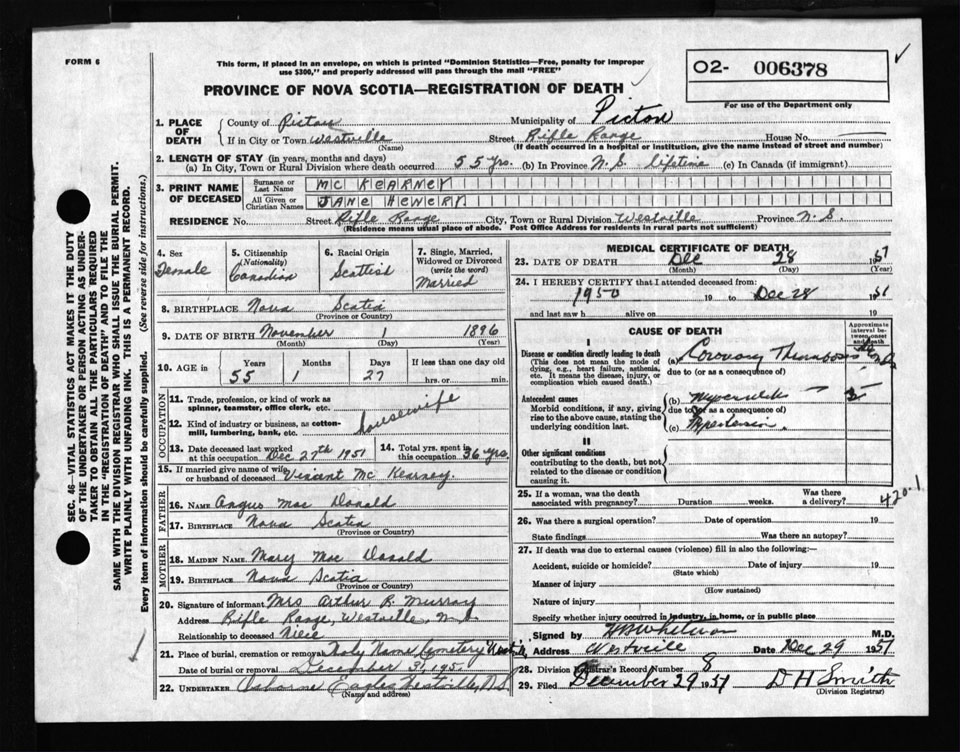 FORM 6
This form, if placed in an envelope, on which is printed "Dominion Statistics—Free, penalty for improper
use $300," and properly addressed will pass through the mail "FREE"
PROVINCE OF NOVA SCOTIA—REGISTRATION OF DEATH
O2- 006378
For use of the Department only
1. PLACE OF DEATH
County of Pictou Municipality of Pictou
If in City or Town Westville Street Rifle Range House No.
(Name) (If death occurred in a hospital or institution, give the name instead of street and number)
2. LENGTH OF STAY (in years, months and days)
(a) In City, Town or Rural Division where death occurred 55 yrs. (b) In Province N.S. lifetime (c) In Canada (if immigrant)
3. PRINT NAME OF DECEASED
Surname or Last Name MC KEARNEY
All Given or Christian Names JANE HEWERY
RESIDENCE No. Street Rifle Range City, Town or Rural Division Westville Province N.S.
(Residence means usual place of abode. Post Office Address for residents in rural parts not sufficient)
4. Sex Female
5. Citizenship (Nationality) Canadian
6. Racial Origin Scottish
7. Single, Married, Widowed or Divorced (write the word) Married
8. BIRTHPLACE Nova Scotia
(Province or Country)
9. DATE OF BIRTH November 1 1896
(Month) (Day) (Year)
10. AGE in Years 55 Months 1 Days 27 If less than one day old hrs. or min.
OCCUPATION
11. Trade, profession, or kind of work as spinner, teamster, office clerk, etc. housewife
12. Kind of industry or business, as cotton-mill, lumbering, bank, etc.
13. Date deceased last worked at this occupation Dec 27th 1951
14. Total yrs. spent in this occupation 36 yrs.
15. If married give name of wife or husband of deceased Vincent Mc Kearney
FATHER
16. NAME Angus Mac Donald
17. BIRTHPLACE Nova Scotia
(Province or Country)
MOTHER
18. MAIDEN NAME Mary Mac Donald
19. BIRTHPLACE Nova Scotia
(Province or Country)
20. Signature of informant Mrs Arthur R. Murray
Address Rifle Range, Westville, N.S.
Relationship to deceased Niece
21. Place of burial, cremation or removal Holy Name Cemetery Westville
Date of burial or removal December 31, 1951
22. UNDERTAKER Osborne Eagles Westville, N.S.
(Name and address)
MEDICAL CERTIFICATE OF DEATH
23. DATE OF DEATH Dec 28 1951
(Month) (Day) (Year)
24. I HEREBY CERTIFY that I attended deceased from:
1950 19 to Dec 28 1951
and last saw h alive on 19
CAUSE OF DEATH
Approximate interval between onset and death
I
Disease or condition directly leading to death
(This does not mean the mode of dying, e.g., heart failure, asthenia, etc. It means the disease, injury, or complication which caused death.)
(a) Coronary Thrombosis
due to (or as a consequence of)
Antecedent causes
Morbid conditions, if any, giving rise to the above cause, stating the underlying condition last.
(b)
due to (or as a consequence of)
(c) Hypertension
II
Other significant conditions
contributing to the death, but not related to the disease or condition causing it.
25. If a woman, was the death associated with pregnancy? Duration weeks. Was there a delivery?
420.1
26. Was there a surgical operation? Date of operation 19
State findings Was there an autopsy?
27. If death was due to external causes (violence) fill in also the following:—
Accident, suicide or homicide? Date of injury 19
(State which)
Manner of injury
(How sustained)
Nature of injury
Specify whether injury occurred in industry, in home, or in public place
Signed by H B Whitman M.D.
Address Westville Date Dec 29 1951
28. Division Registrar's Record Number 8
29. Filed December 29 1951 D H Smith
(Division Registrar)
SEC. 46—VITAL STATISTICS ACT MAKES IT THE DUTY
OF THE UNDERTAKER OR PERSON ACTING AS UNDERTAKER
TO OBTAIN ALL THE PARTICULARS REQUIRED
IN THE "REGISTRATION OF DEATH" AND TO FILE THE
SAME WITH THE DIVISION REGISTRAR WHO SHALL ISSUE THE BURIAL PERMIT.
WRITE PLAINLY WITH UNFADING INK. THIS IS A PERMANENT RECORD.
Every item of information should be carefully supplied. (See reverse side for instructions.)